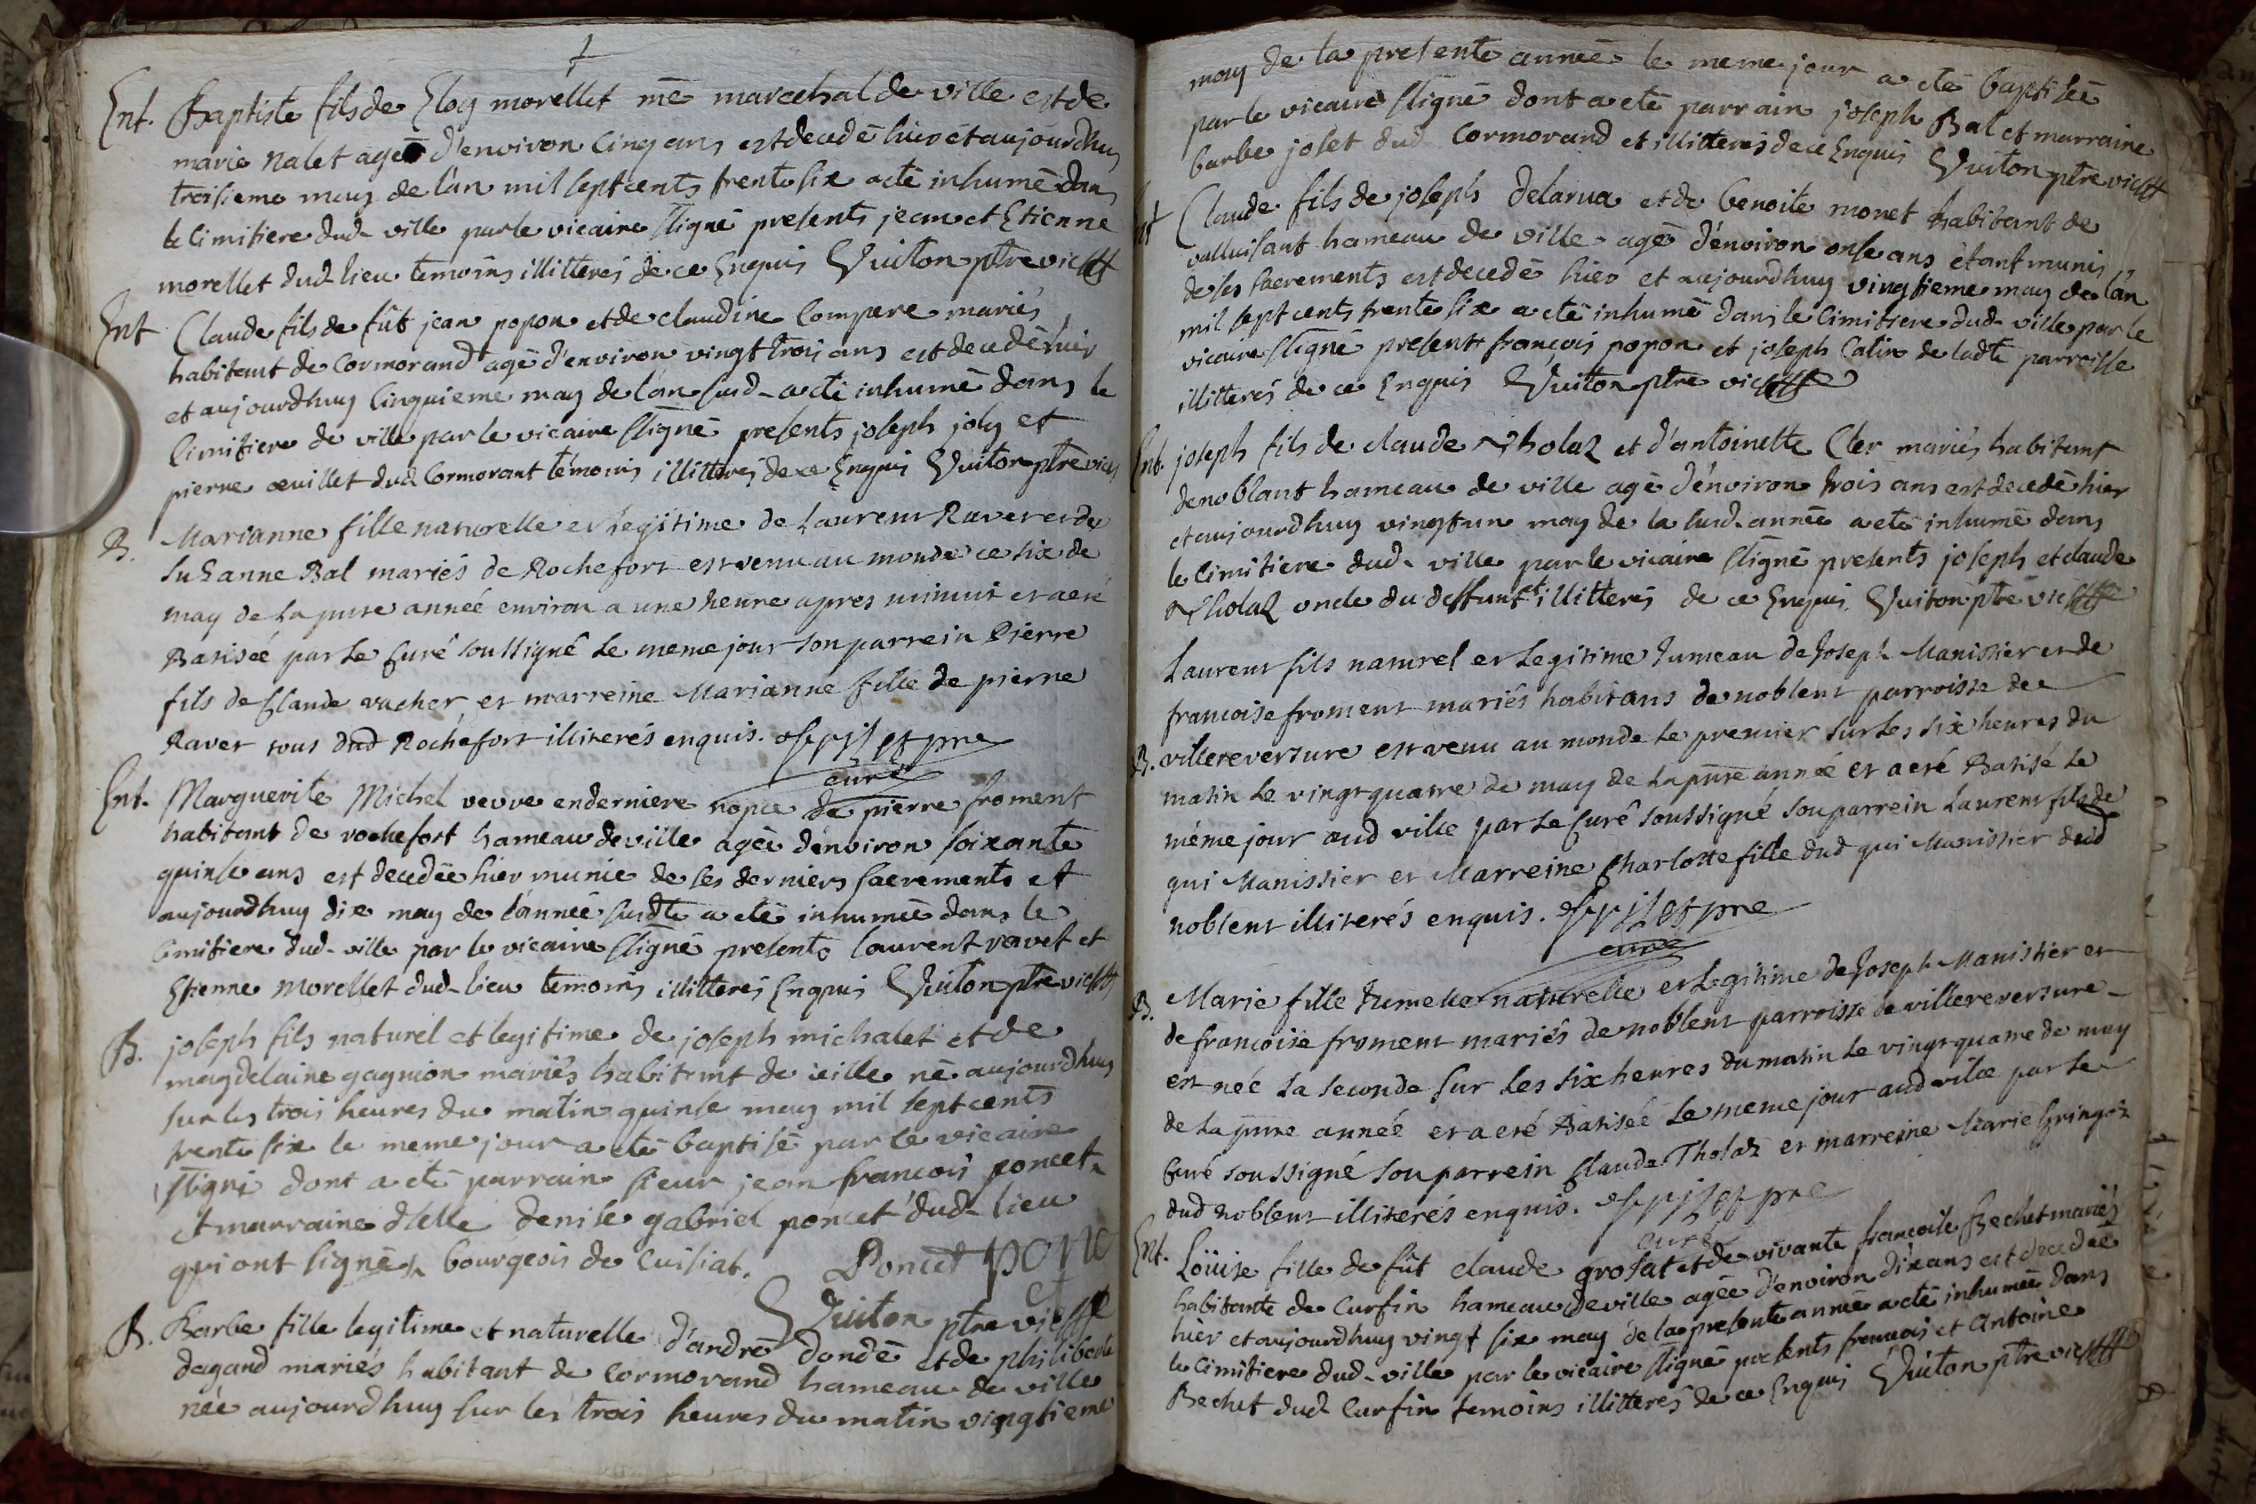 Ent. Baptiste fils de Eloy morellet mē marechal de ville et de
marie nalet agē d'environ cinq ans est decedé hier et aujourdhuy
troisieme may de lan mil sept cents trente six a cté inhumé dans
le cimitiere dud- ville par le vicaire ssigné presents jean et Etienne
morellet dud lieu temoins illitterés de ce Enquis Vuiton ptre vic
Ent Claude fils de fût jean popon et de claudine Compere mariés
habitant de Cormorand agé d'environ vingt trois ans est decedé hier
et aujourdhuy Cinquieme may de lan susd- a cté inhumé dans le
Cimitiere de ville par le vicaire ssigné presents joseph joly et
pierre œuillet dud Cormorant témoins illitterés de ce Enquis Vuiton ptre vic
B. Marianne fille naturelle et legitime de Laurent Ravet et de
Suzanne Bal mariés de Rochefort est venu au monde ce six de
may de la pnte année environ a une heure apres minuit et a eté
Batisée par le Curé soussigné le meme jour son parrein Pierre
fils de Claude vacher et marreine Marianne fille de pierre
Ravet tous dud Rochefort illiterés enquis.
curé
Ent. Marguerite Michel veuve en derniere nopce de pierre froment
habitant de rochefort hameau de ville agée d'environ soixante
quinse ans est decedée hier munie de ses derniers sacrements et
aujourdhuy dix may de l'année susdte a cté inhumée dans le
Cimitiere dud- ville par le vicaire ssigné presents laurent ravet et
Etienne Morellet dud- lieu temoins illitterés Enquis Vuiton ptre vic
B. joseph fils naturel et legitime de joseph michalet et de
magdelaine gagnion mariés habitant de ville né aujourdhuy
sur les trois heures du matin quinse may mil sept cents
trente six le meme jour a cté baptisé par le vicaire
ssigné dont a cté parrain sieur jean francois poncet
et marraine dlelle denise gabriel poncet dud- lieu
qui ont signé bourgeois de Cuisiat. Poncet ponc
et
Vuiton ptre vic
B. Barbe fille legitime et naturelle d'andré dondé et de philiberte
dagand mariés habitant de Cormorand hameau de ville
née aujourdhuy sur les trois heures du matin vingtieme
may de la presente année le meme jour a cté baptisée
par le vicaire ssigné dont a cté parrain joseph Bal et marraine
barbe jolet dud Cormorand et illitterés de ce Enquis Vuiton ptre vic
Claude fils de joseph delarua et de benoite monet habitant de
valluisant hameau de ville agé d'environ onse ans étant munis
de ses sacrements est decedé hier et aujourdhuy vingtieme may de lan
mil sept cents trente six a cté inhumé dans le Cimitiere dud- ville par le
vicaire ssigné present françois popon et joseph Catin de ladte parroisse
illitterés de ce Enquis Vuiton ptre vic
Ent. joseph fils de claude Tholaz et d'antoinette Cler mariés habitant
de noblant hameau de ville agé d'environ trois ans est decedé hier
et aujourdhuy vingt un may de la susd- année a eté inhumé dans
le Cimitiere dud- ville par le vicaire ssigné presents joseph et claude
Tholaz oncle du deffunt et illitterés de ce Enquis Vuiton ptre vic
Laurent fils naturel et Legitime Jumeau de Joseph Manissier et de
francoise froment mariés habitans de noblent parroisse de
B. villereversure est venu au monde le premier sur les six heures du
matin le vingt quatre de may de la pnte année et a eté Batisé le
méme jour aud ville par le Curé soussigné son parrein Laurent fils de
gui Manissier et Marreine Charlotte fille dud gui Manissier dud
noblent illiterés enquis.
curé
B. Marie fille Jumelle naturelle et Legitime de Joseph Manissier et
de francoise froment mariés de noblent parroisse de villereversure
est née la seconde sur les six heures du matin le vingt quatre de may
de la pnte année et a eté Batisée le meme jour aud ville par le
Curé soussigné son parrein Claude Tholaz et marreine Marie Gringoz
dud noblent illiterés enquis.
curé
Ent. Loüise fille de fût claude grosat et de vivante francoise Bechet mariés
habitante de Curfin hameau de ville agée d'environ dix ans est decedée
hier et aujourdhuy vingt six may de la presente année a cté inhumée dans
le Cimitiere dud- ville par le vicaire ssigné presents francois et Antoine
Bechet dud Curfin temoins illitterés de ce Enquis Vuiton ptre vic